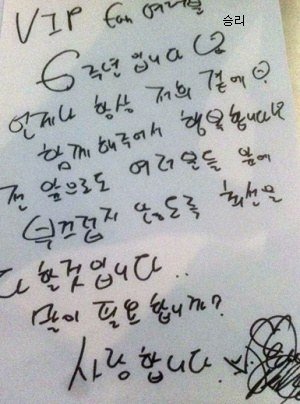 승리
VIP fan 여러분
6주년 입니다
언제나 항상 저희 곁에
함께 해주어서 행복합니다
전 앞으로도 여러분들 앞에
부끄럽지 않도록 최선을
다 할것입니다..
말이 필요합니까?
사랑합니다.